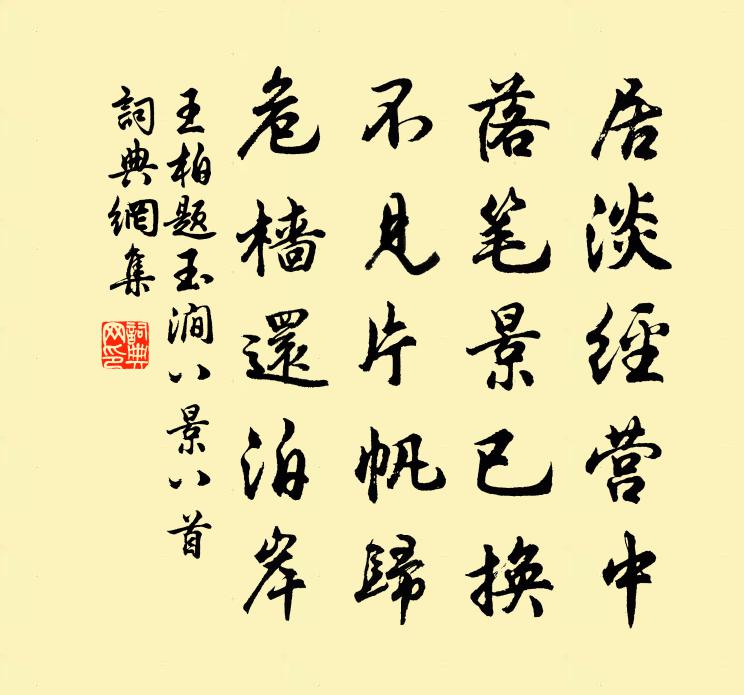 居淡經营中
落笔景已換
不見片帆歸
危檣還泊岸
王柏题玉澗八景八首
詞典網集
詞典网印